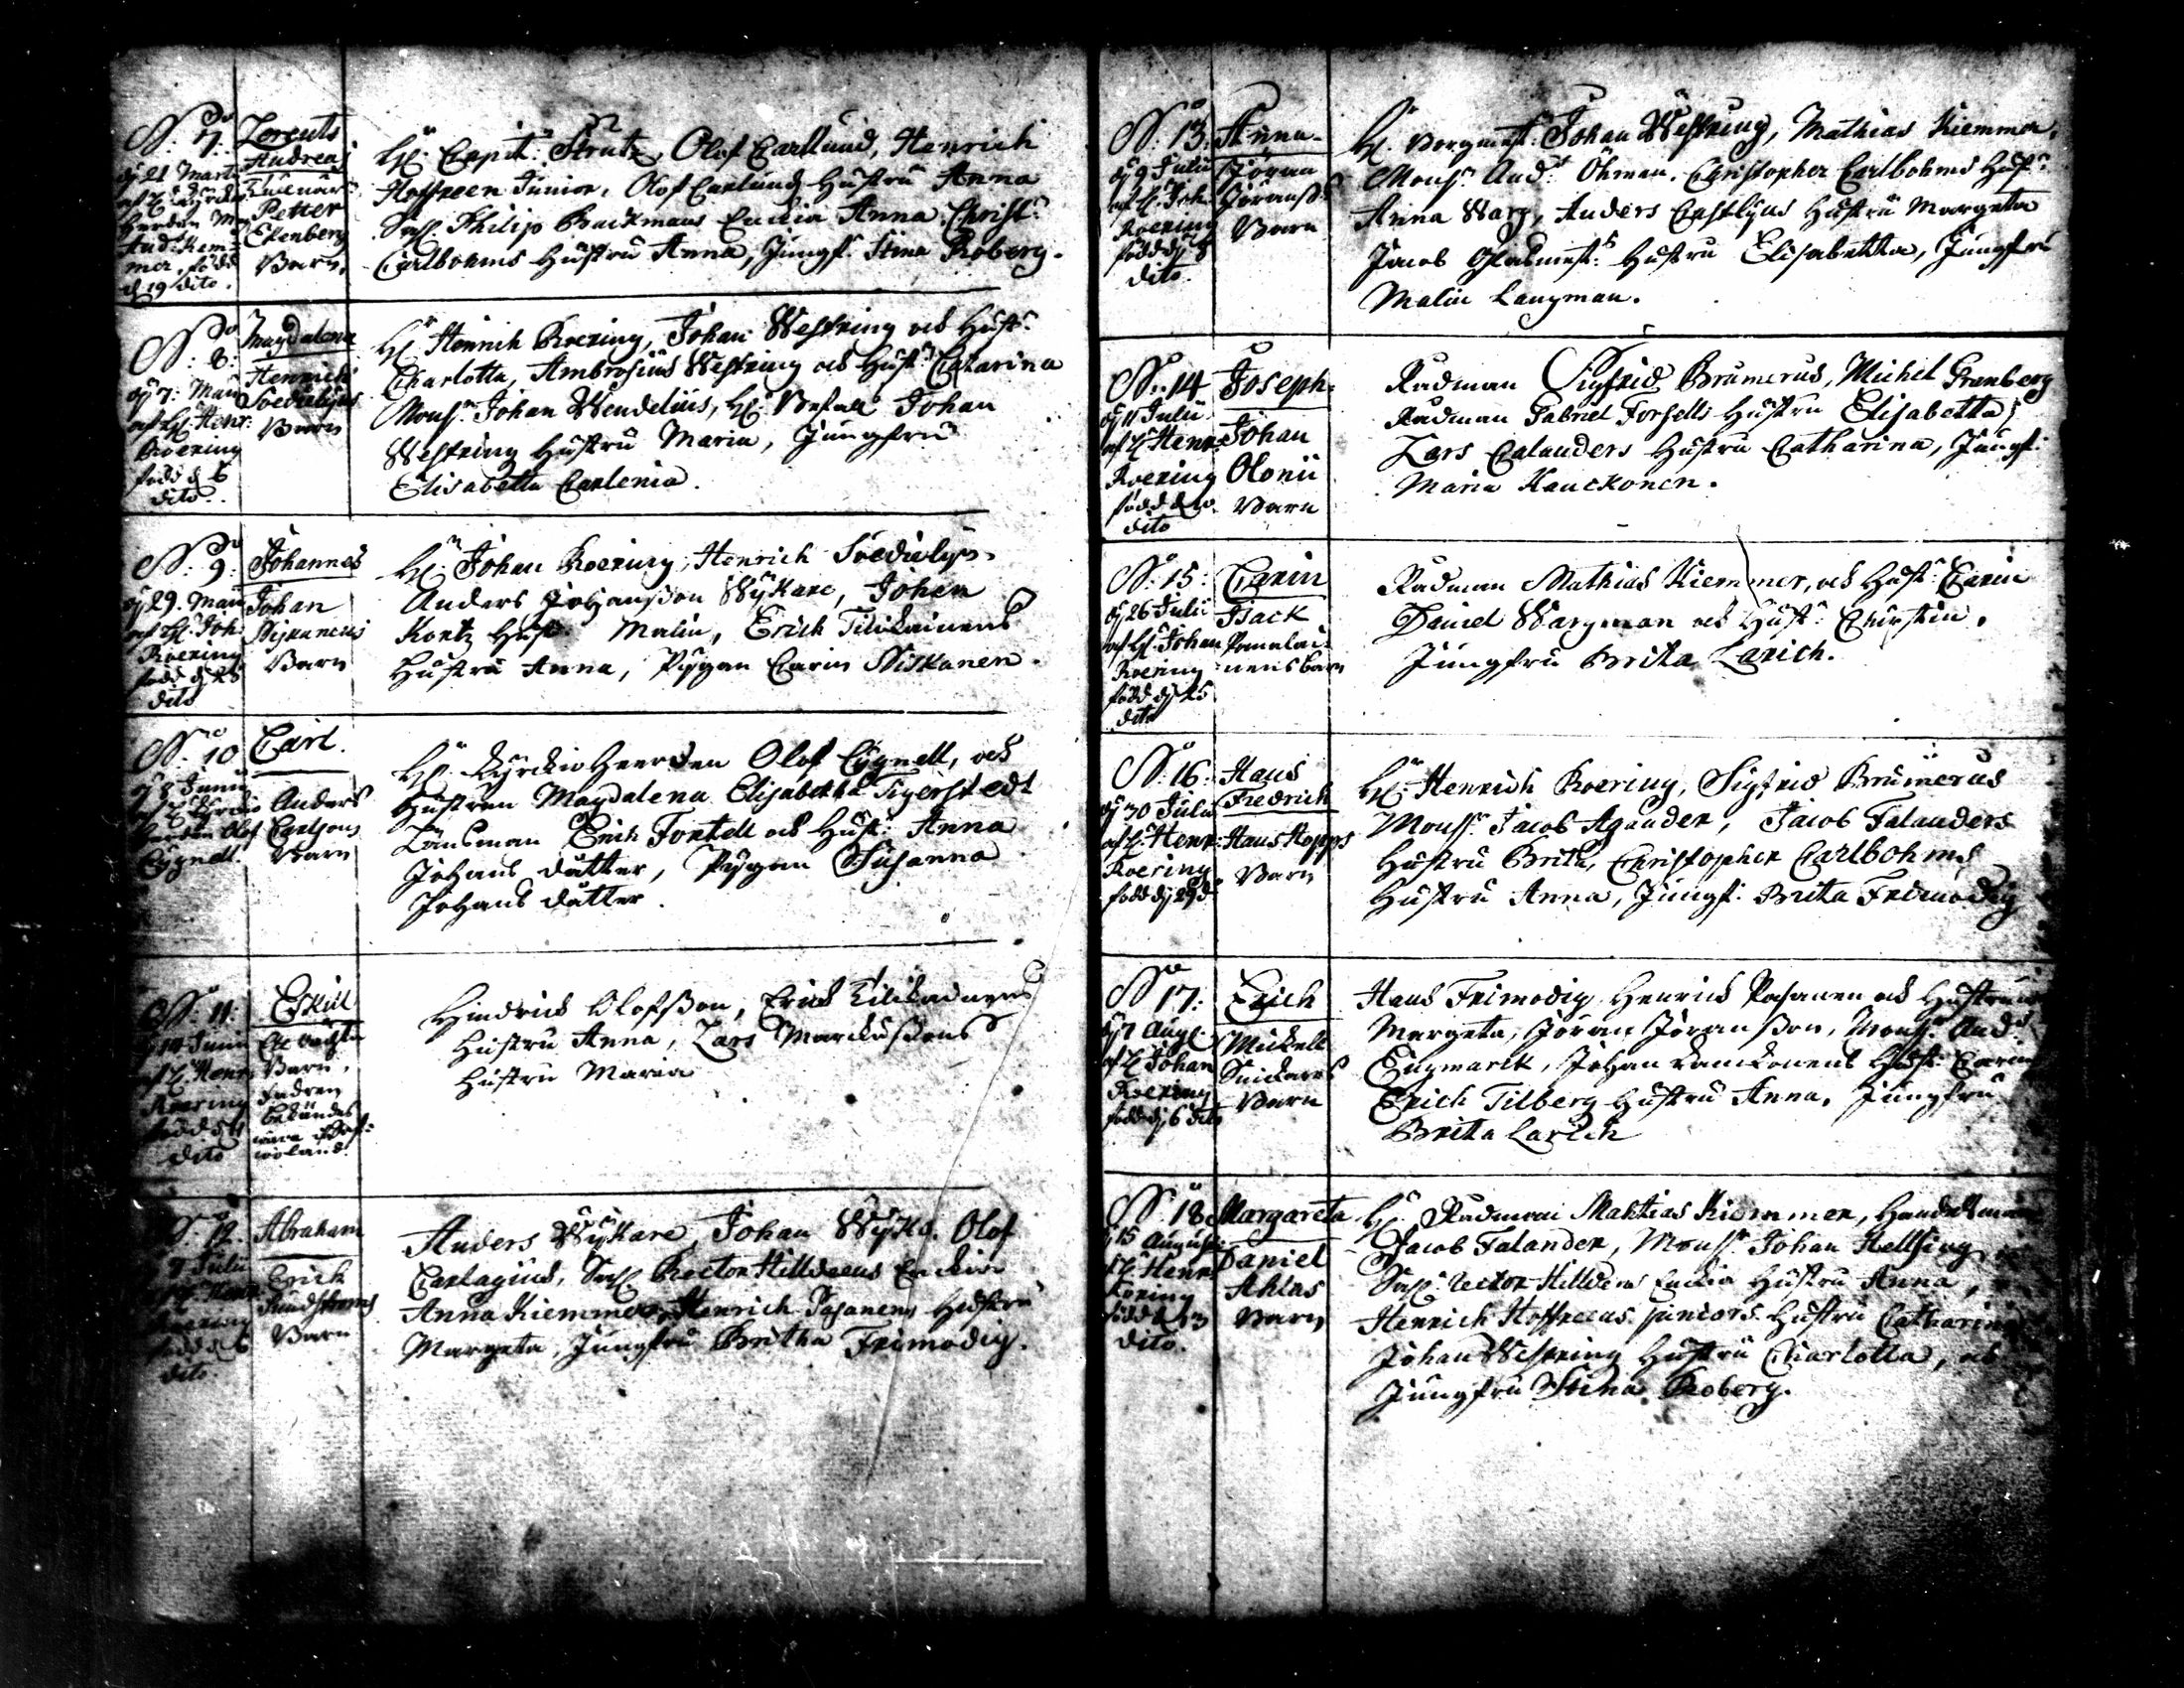 No 7:
dÿ 21 Martii
af H. Kÿrckio
Herden M.
And: Kem-
mer, född
d 19 dito.
Lorents
Andreas
Petter
Ekenberg
Barn,
Hr. Capit: Strutz, Olof Carlund, Henrich
Hoffreen Junior, Olof Carlunds Hustru Anna
Sahl. Philip Backmans Enckia Anna, Christ:
Carlbohms Hustru Anna, Jungf. Stina Roberg.
No 8:
dÿ 7: Maii
af H. Henr:
Roering
född d 6
dito.
Magdalena
Henrich
Barn
Hr. Henrich Roering, Johan Wesfring och Hust:
Charlotta, Ambrosius Wesfring och Hust: Catarina
Mons: Johan Wendelius, Hr. Johan
Wesfring Hustru Maria, Jungfru
Elisabetta Carlenia.
No 9:
dÿ 29. Maii
af H. Joh.
Roering
född d 28
dito
Johannes
Johan
Barn
Hr. Johan Roering, Henrich
Anders Johansson Wÿkare, Johan
Kortz Hust. Malin, Erich Tilikainens
Hustru Anna, Pÿgan Carin Niskanen.
No 10
dÿ 8 Junii
af H. Kÿrckio
Herden Olof
Cygnell.
Carl.
Anders
Carlsons
Barn
Hr. Kÿrckio Heerden Olof Cÿgnell, och
Hustrun Magdalena Elisabetha Tigerstedt
Länsman Erich Fortell och Hust: Anna
Johans dotter, Pÿgan Susanna
Johans dotter.
No 11:
14 Junii
af H. Henr:
Roering
född d 11
dito
Eskill
Barn,
Fadren
Hindrick Olofsson, Erick Tilikainens
Hustru Anna, Lars Marckussons
Hustru Maria
No 12.
7 Julii
af H. Henr:
Roering
född d 6
dito.
Abraham
Erich
Sundstroms
Barn
Anders Wÿkare, Johan Wÿka. Olof
Carlagius, Sahl. Rector Hilldeens Enckia
Anna Kiemmer, Henrich Pasanens Hustru
Margeta, Jungfru Britha Frimodig.
No 13:
dÿ 9 Julii
af H. Joh.
Roering
född dÿ 8
dito.
Anna.
Jöran
Jöranss.
Barn
Hr. Borgmest: Johan Wesfring, Mathias Kiemmer,
Mons: And: Öhman. Christopher Carlbohms Hust:
Anna Warg, Anders Castlÿus Hustru Margeta
Jacob Glasmest: Hustru Elisabettha, Jungfru
Malin Langman.
No 14
dÿ 11 Julii
af H. Henr:
Roering
född d 10
dito
Joseph.
Johan
Olonii
Barn
Radman Sigfrid Brumerus, Michel Granberg
Radman Gabriel Forsells Hustru Elisabetta,
Lars Calanders Hustru Catharina, Jungf:
Maria Kauckonen.
No 15:
dÿ 26 Julii
af H. Johan
Roering
född dÿ 25
dito
Carin
Isack
Pomalai-
nens barn
Radman Mathias Kiemmer, och Hust: Carin
Daniel Wargman och Hust: Christin.
Jungfru Brita Larich.
No 16:
dÿ 30 Julii
af H. Henr:
Roering
född dÿ 29 do
Hans
Fredrich
Hans Hopps
Barn
Hr. Henrich Roering, Sigfrid Brumerus
Mons: Jacob Agander, Jacob Falanders
Hustru Brita, Christopher Carlbohms
Hustru Anna, Jungf: Brita Frimodig
No 17:
dÿ 7 Aug.
af H. Johan
Roering
född dÿ 6 dito
Erich
Mickell
Snickares
Barn
Hans Frimodig Henrich Pasanen och Hustrun
Margeta, Jöran Jöransson, Mons: And:
Engmarck, Johan Hust: Carin
Erich Tilberg Hustru Anna, Jungfru
Brita Larich
No 18
15 August:
af H. Henr
Roering
född d 13
dito.
Margareta
Daniel
Ahlas
Barn
Hr. Radman Mathias Kiemmer, Handelsman
Jacob Falander, Mons: Johan Hellsing
Sahl. Rector Hilldens Enckia Hustru Anna,
Henrich Hoffreens juniors Hustru Catharina
Johan Wesfring Hustru Charlotta, och
Jungfru Stina Roberg.